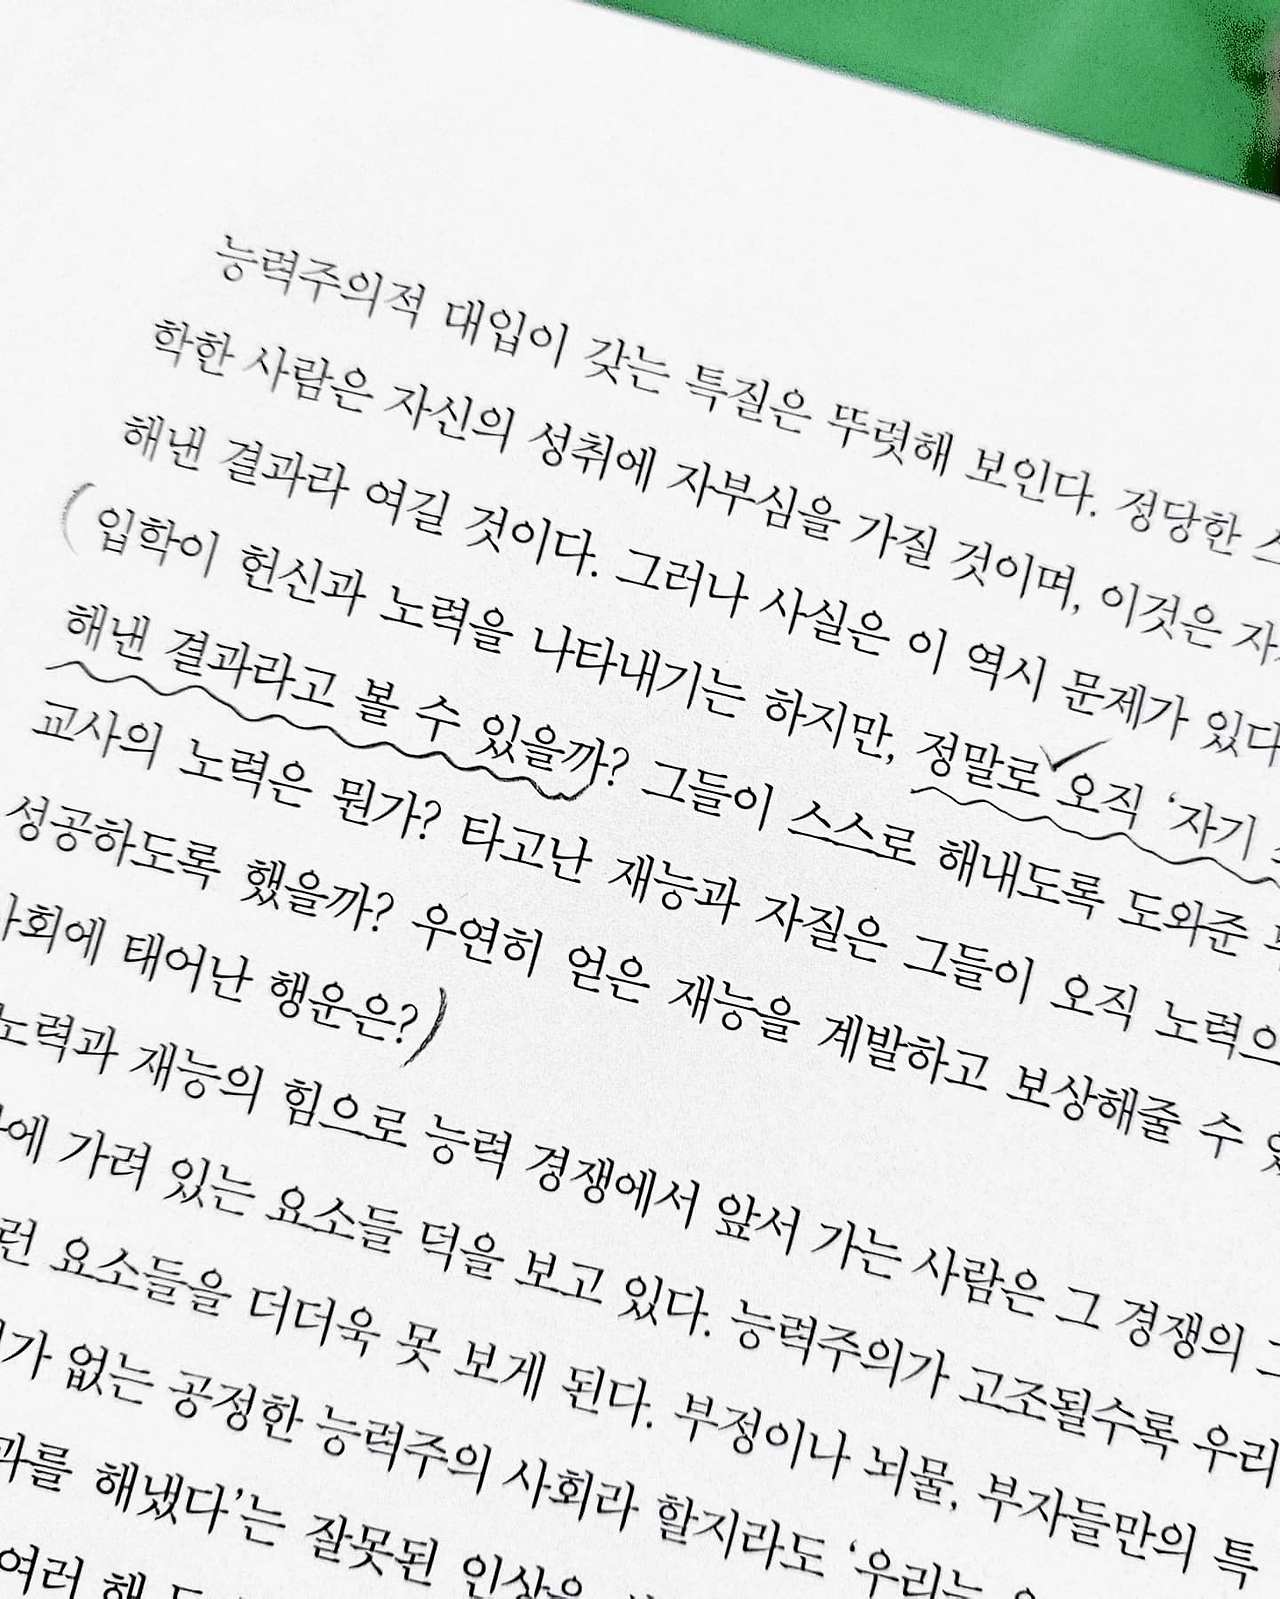 능력주의적 대입이 갖는 특질은 뚜렷해 보인다. 정당한
학한 사람은 자신의 성취에 자부심을 가질 것이며, 이것은
해낸 결과라 여길 것이다. 그러나 사실은 이 역시 문제가 있다
(입학이 헌신과 노력을 나타내기는 하지만, 정말로 오직 ‘자기
해낸 결과라고 볼 수 있을까? 그들이 스스로 해내도록 도와준
교사의 노력은 뭔가? 타고난 재능과 자질은 그들이 오직 노력으
성공하도록 했을까? 우연히 얻은 재능을 계발하고 보상해줄 수
사회에 태어난 행운은?)
노력과 재능의 힘으로 능력 경쟁에서 앞서 가는 사람은 그 경쟁의
에 가려 있는 요소들 덕을 보고 있다. 능력주의가 고조될수록 우리
런 요소들을 더더욱 못 보게 된다. 부정이나 뇌물, 부자들만의 특
가 없는 공정한 능력주의 사회라 할지라도 ‘우리는
과를 해냈다’는 잘못된 인상을
여러 해